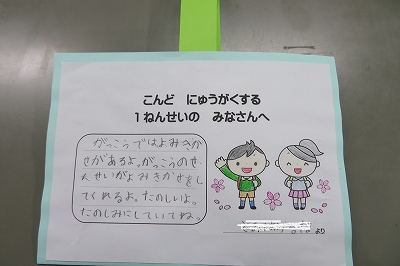 こんど にゅうがくする
1ねんせいの みなさんへ
がっこうではよみきか
せがあるよ。がっこうのせ
んせいがよみきかせをし
てくれるよ。たのしいよ。
たのしみにしていてね。
より